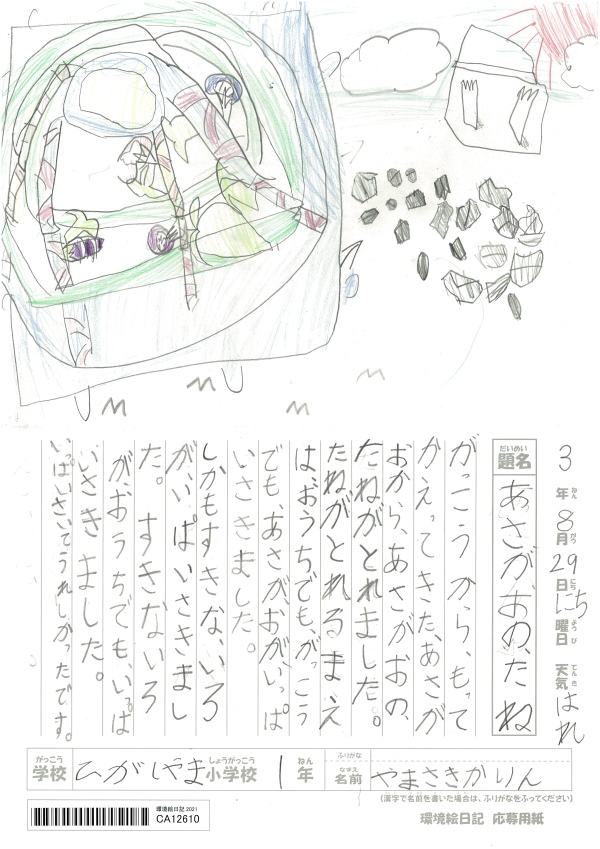 3年8月29日にち曜日 天気はれ
ねん
がつ
にち
よう び
てん き
だいめい
題名
あさがおの、たね
がっこうから、もって
かえってきた、あさが
おから、あさがおの、
たねがとれました。
たねがとれるまえ
はおうちでも、がっこう
でも、あさがおがいっぱ
いさきました。
しかもすきな、いろ
がいっぱいさきまし
た。すきないろ
がおうちでも、いっぱ
いさきました。
いっぱいさいてうれしかったです。
がっこう
学校
ひがしやま
しょうがっこう
小学校
1
ねん
年
ふりがな
なまえ
名前
やまさきかりん
(漢字で名前を書いた場合は、ふりがなをふってください)
環境絵日記 2021
CA12610
環境絵日記 応募用紙